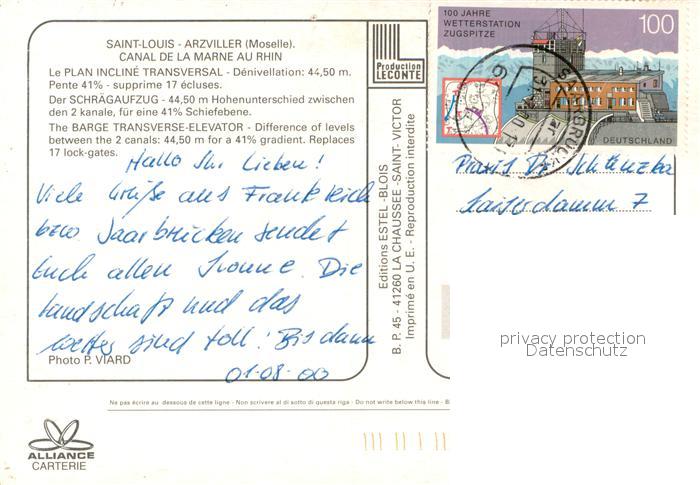 SAINT-LOUIS - ARZVILLER (Moselle).
CANAL DE LA MARNE AU RHIN
Le PLAN INCLINÉ TRANSVERSAL - Dénivellation: 44,50 m.
Pente 41% - supprime 17 écluses.
Der SCHRÄGAUFZUG - 44,50 m Hohenunterschied zwischen
den 2 kanale, für eine 41% Schiefebene.
The BARGE TRANSVERSE-ELEVATOR - Difference of levels
between the 2 canals: 44,50 m for a 41% gradient. Replaces
17 lock-gates.
Hallo Ihr Lieben!
Viele Grüße aus Frankreich
bzw Saarbrücken sendet
Euch allen Ivonne. Die
Landschaft und das
Wetter sind toll! Bis dann
01-08-00
Photo P. VIARD
Production
LECONTE
Editions ESTEL -BLOIS
B. P. 45 - 41260 LA CHAUSSEE -SAINT- VICTOR
Imprimé en U. E. - Reproduction interdite
100 JAHRE
WETTERSTATION
ZUGSPITZE
100
DEUTSCHLAND
SAARBRÜCKEN
Praxis Dr. Schützka
Kaiserdamm 7
privacy protection
Datenschutz
Ne pas écrire au dessous de cette ligne - Non scrivere al di sotto di questa riga - Do not write below this line - B
ALLIANCE
CARTERIE